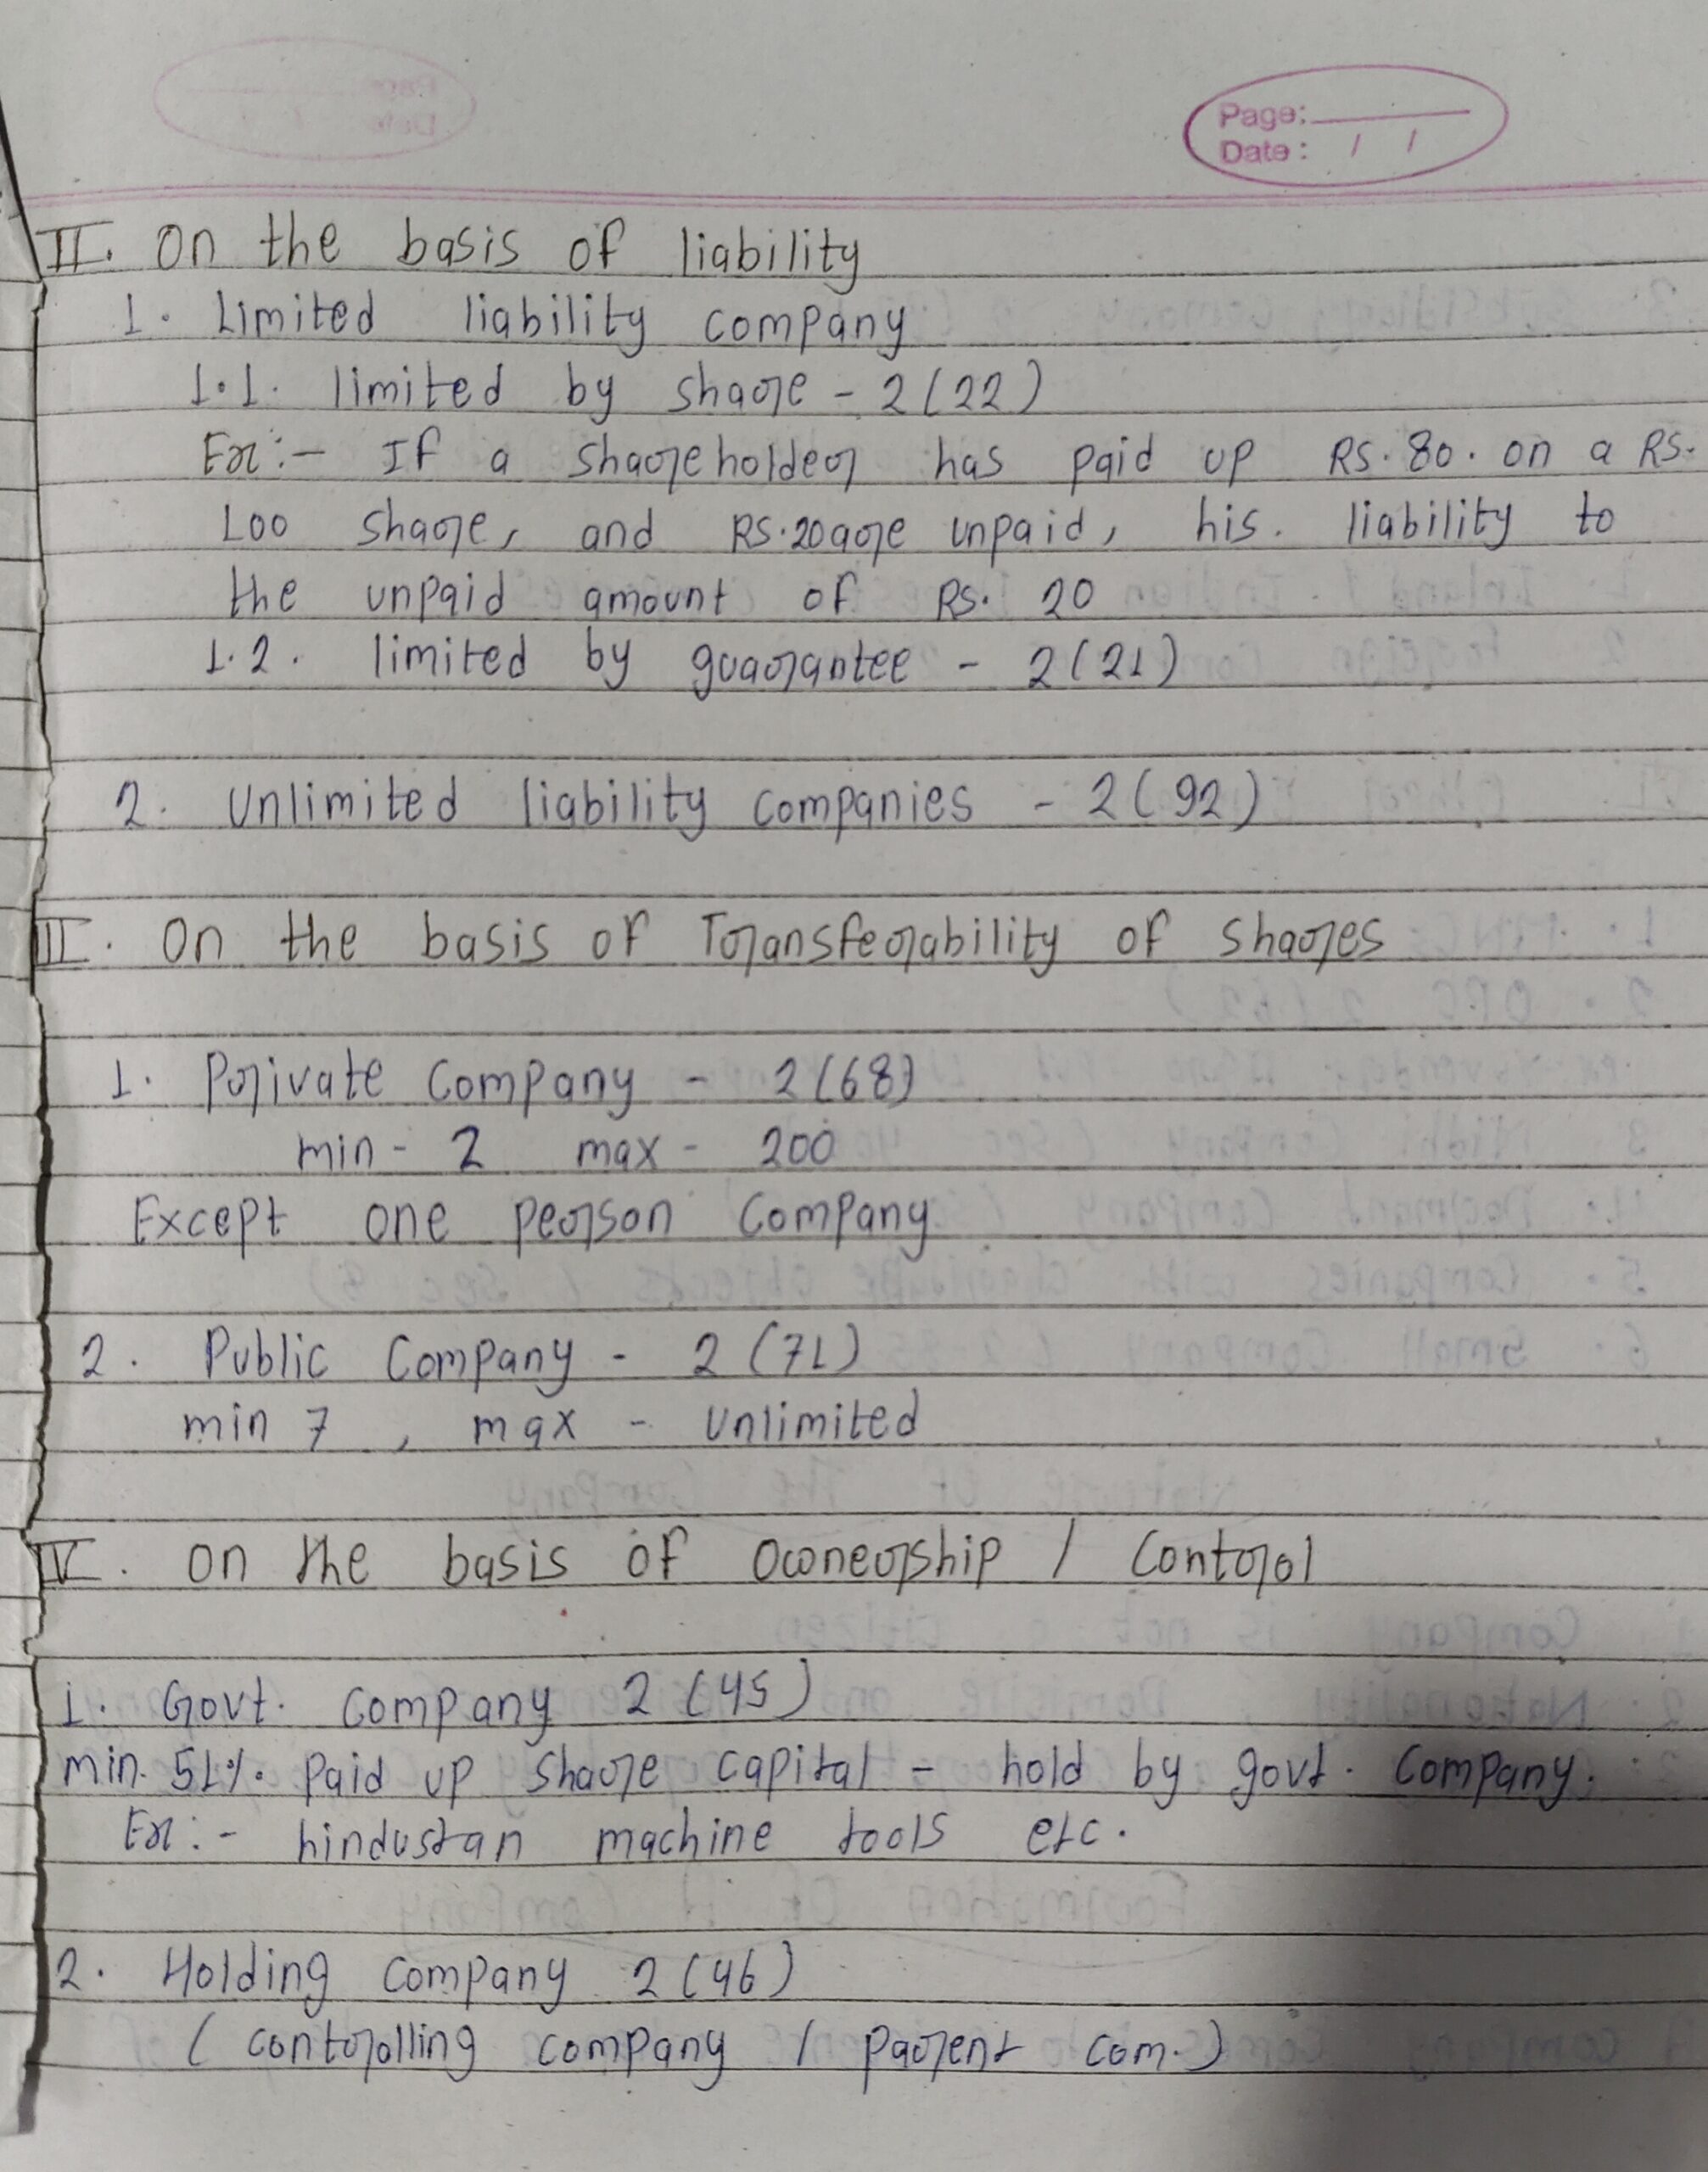 Page:
Date : / /
II. On the basis of liability
1. Limited liability company
1.1. limited by share - 2(22)
Ex:- If a shareholder has paid up RS. 80. on a RS.
100 share, and RS.20are unpaid, his. liability to
the unpaid amount of RS. 20
1.2. limited by guarantee - 2(21)
2. Unlimited liability companies - 2(92)
III. On the basis of Transferability of shares
1. Private Company - 2(68)
min - 2 max - 200
Except one person Company
2. Public Company - 2(71)
min 7 , max - Unlimited
IV. On the basis of Ownership / Control
1. Govt. Company 2(45)
min. 51% Paid up share capital - hold by govt. Company.
Ex:- hindustan machine tools etc.
2. Holding Company 2(46)
( controlling company / parent com.)